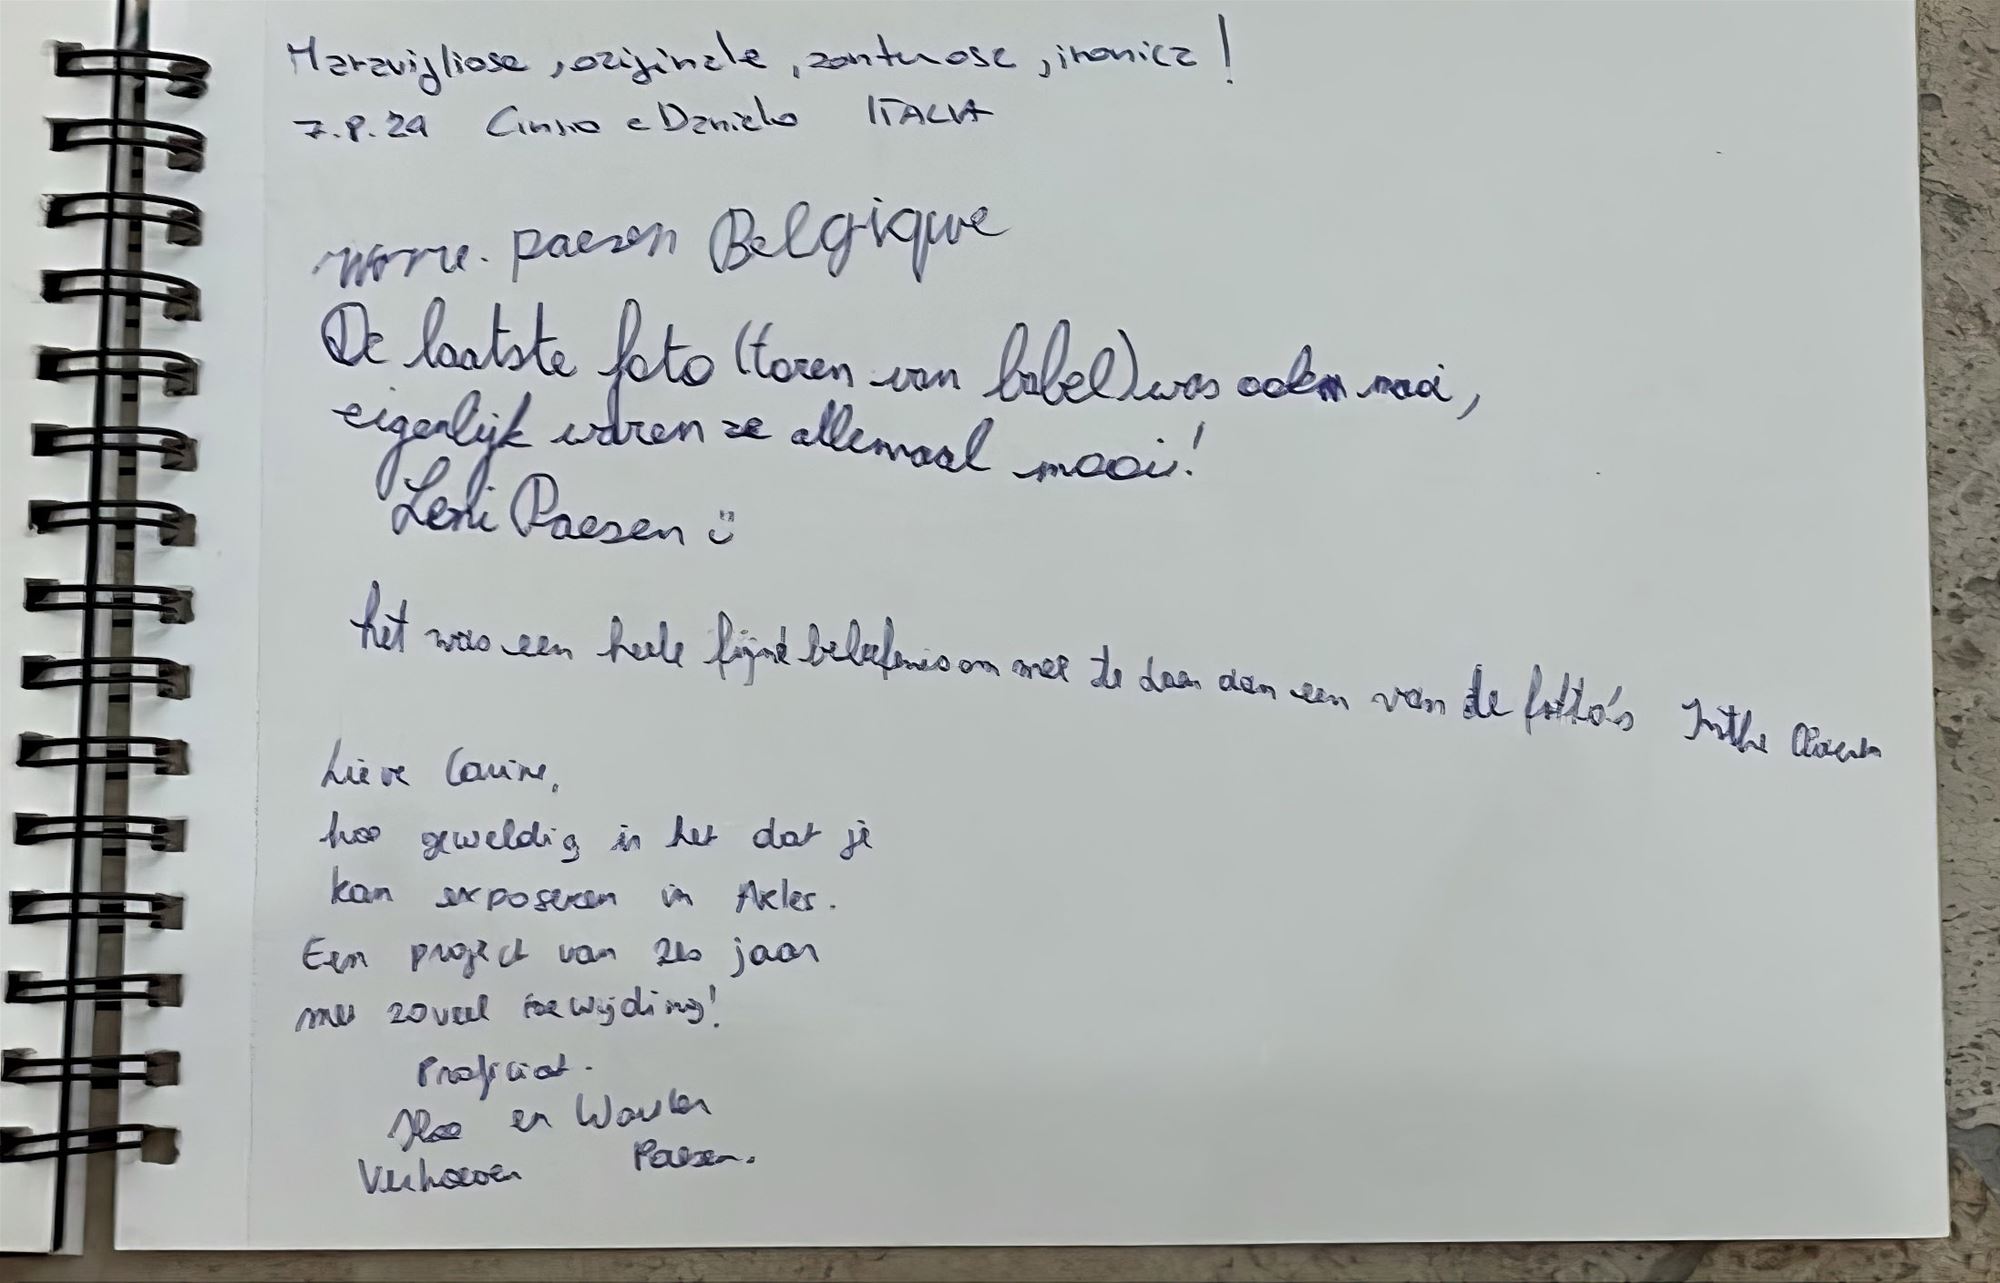 Meravigliose, originale, sontuose, ironica!
7.8.24 e Daniela ITALIA
paesen Belgique
De laatste foto (toren van babel) was ook mooi,
eigenlijk waren ze allemaal mooi!
Leni Paesen
het was een hele fijne belefenis om mee te doen aan een van de fotto's
Lieve Carine,
hoe geweldig is het dat je
kan exposeren in Arles.
Een project van 20 jaar
met zoveel toewijding!
Proficiat.
en Wouter
Verhoeven Paesen.